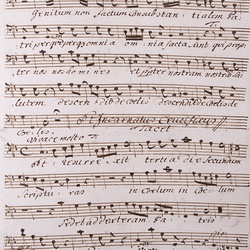 Genitum non factum consubstantialem Pa
tri per quem omnia omnia facta sunt qui prop
ter nos homines et propter nostram nostra sa
lutem descendit de coelis descendit de coelis
Et Incarnatus Crucifixus
Coelis tacet
Vivace molto
et resurrexit tertia die secundum
Scripturas in Coelum in Coelum
Sedet ad dexteram Patris